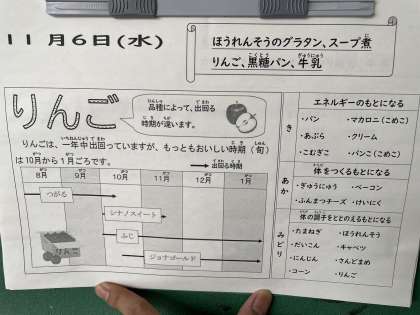 11月6日(水)
ほうれんそうのグラタン、スープ煮
りんご、黒糖パン、牛乳
りんご
品種によって、出回る
時期が違います。
りんごは、一年中出回っていますが、もっともおいしい時期(旬)
は10月から1月ごろです。
出回る時期
8月 9月 10月 11月 12月 1月
つがる
シナノスイート
ふじ
ジョナゴールド
りんご
き
エネルギーのもとになる
・パン ・マカロニ(こめこ)
・あぶら ・クリーム
・こむぎこ ・パンこ(こめこ)
あか
体をつくるもとになる
・ぎゅうにゅう ・ベーコン
・ふんまつチーズ ・けいにく
みどり
体の調子をととのえるもとになる
・たまねぎ ・ほうれんそう
・だいこん ・キャベツ
・にんじん ・さんどまめ
・コーン ・りんご